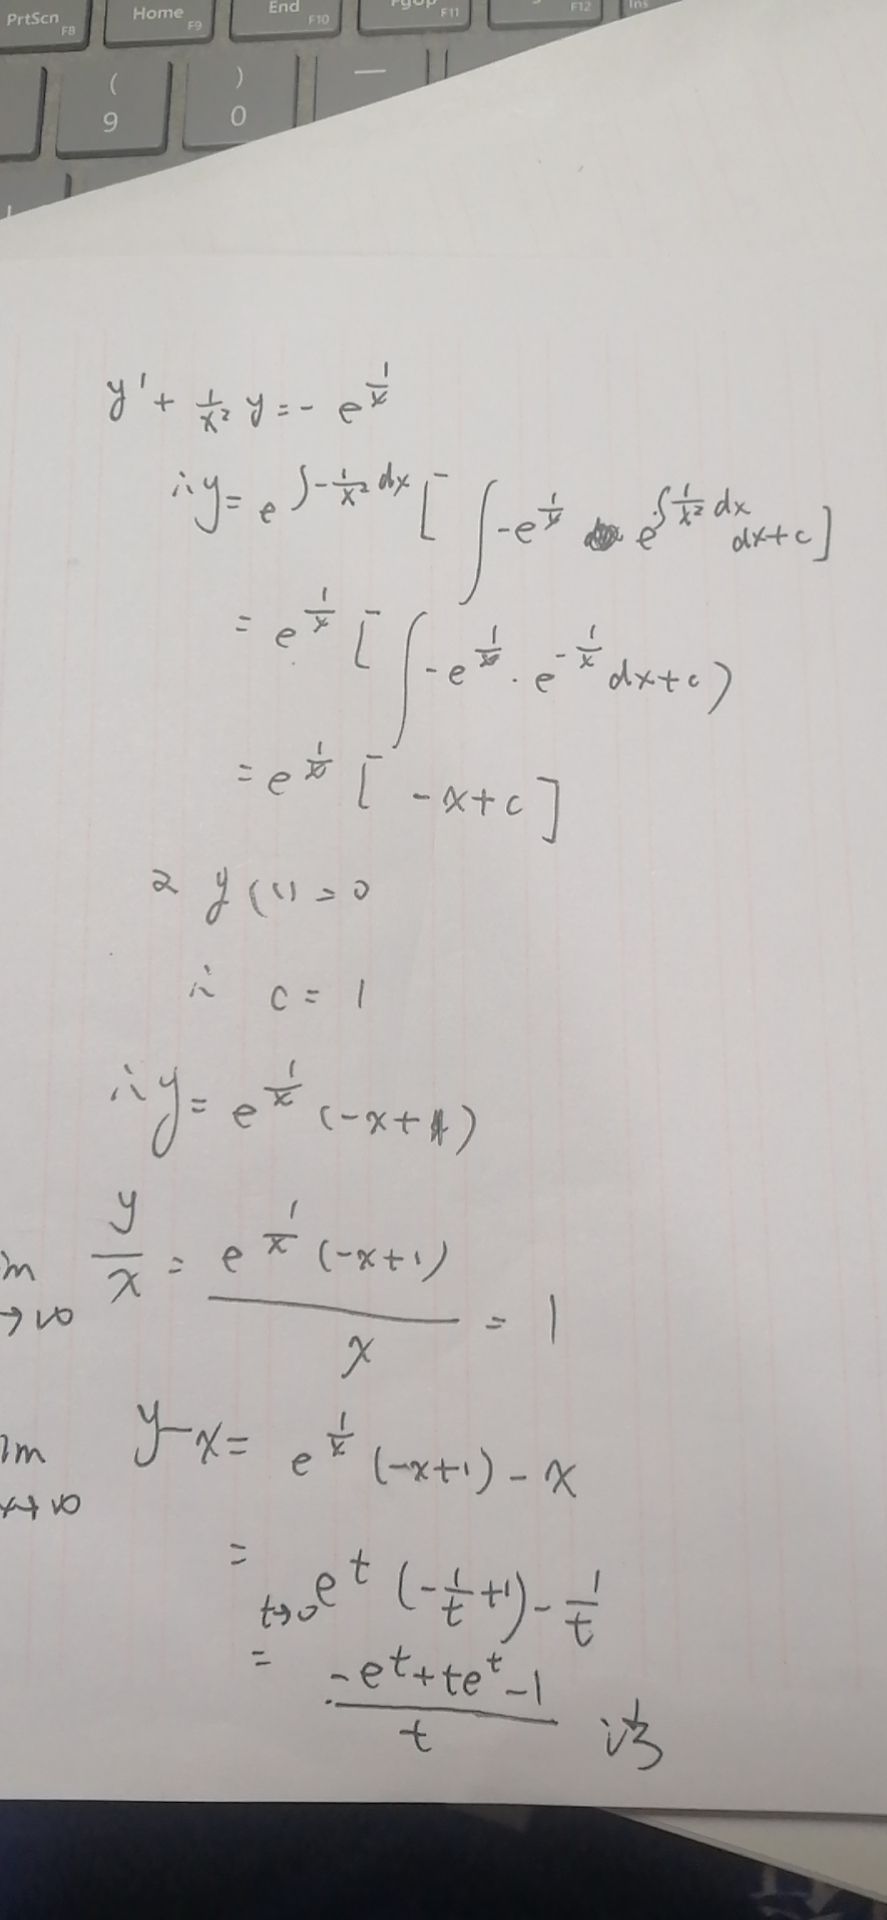 PrtScn F8 Home F9 End F10 PgUp F11 F12 Ins
( 9 ) 0 —
y' + 1/x² y = - e^(1/x)
∴ y = e^(∫-1/x² dx) [ ∫ -e^(1/x) e^(∫1/x² dx) dx+c ]
= e^(1/x) [ ∫ -e^(1/x) · e^(-1/x) dx+c )
= e^(1/x) [ -x+c ]
2 y(1)=0
∴ c = 1
∴ y = e^(1/x) (-x+1)
im →∞ y/x = e^(1/x) (-x+1) / x = 1
im x→∞ y-x = e^(1/x) (-x+1) - x
= t→0 e^t (-1/t +1) - 1/t
= -e^t + te^t - 1 / t